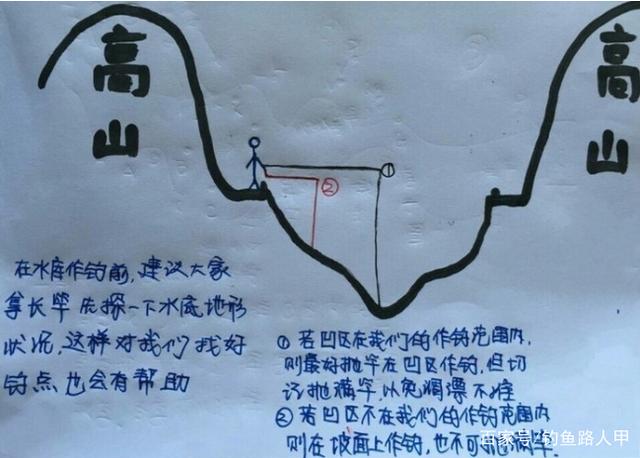 高山
高山
①
②
在水库作钓前,建议大家
拿长竿先探一下水底地形
状况,这样对我们找好
钓点也会有帮助
① 若凹区在我们的作钓范围内,
则最好抛竿在凹区作钓,但切
记抛满竿以免调漂不准
② 若凹区不在我们的作钓范围内
则在坡面上作钓,也不可抛满竿.
百家号/钓鱼路人甲